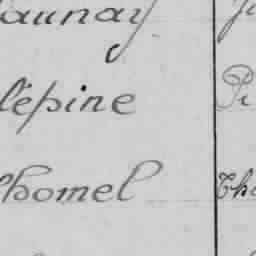 aunay
lépine Pi
homel Tho